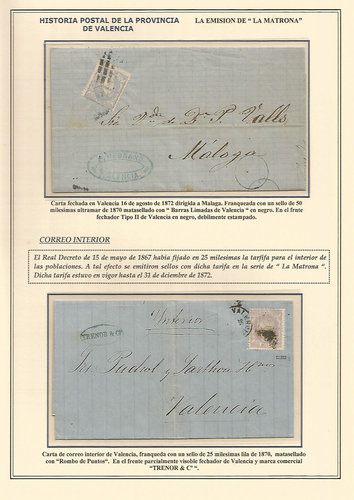 HISTORIA POSTAL DE LA PROVINCIA
DE VALENCIA
LA EMISION DE “ LA MATRONA”
Málaga
VALENCIA
Carta fechada en Valencia 16 de agosto de 1872 dirigida a Malaga. Franqueada con un sello de 50
milesimas ultramar de 1870 matasellado con “ Barras Limadas de Valencia “ en negro. En el frente
fechador Tipo II de Valencia en negro, debilmente estampado.
CORREO INTERIOR
El Real Decreto de 15 de mayo de 1867 habia fijado en 25 milesimas la tarfifa para el interior de
las poblaciones. A tal efecto se emitiron sellos con dicha tarifa en la serie de “ La Matrona “.
Dicha tarifa estuvo en vigor hasta el 31 de diciembre de 1872.
Interior
TRENOR & Cª
Valencia
Carta de correo interior de Valencia, franqueda con un sello de 25 milesimas lila de 1870, matasellado
con “Rombo de Puntos“. En el frente parcialmente visoble fechador de Valencia y marca comercial
“TRENOR & Cª “.